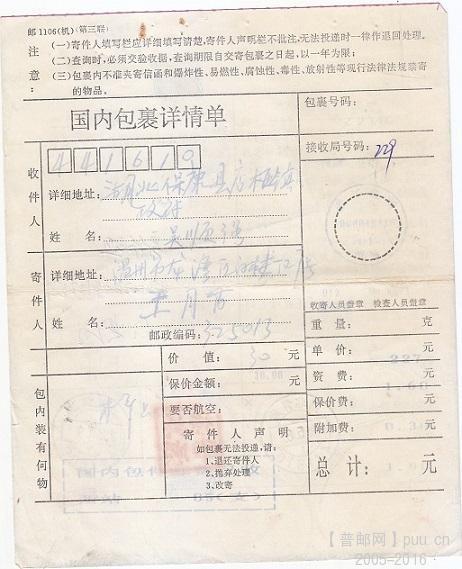 邮1106(机)(第三联)
注意:
(一)寄件人填写栏应详细填写清楚,寄件人声明栏不批注,无法投递时一律作退回处理。
(二)查询时,必须交验收据,查询期限自交寄包裹之日起,以一年为限;
(三)包裹内不准夹寄信函和爆炸性、易燃性、腐蚀性、毒性、放射性等现行法律法规禁寄
的物品。
国内包裹详情单
包裹号码:
接收局号码: 229
收件人
441619
详细地址: 湖北保康县店垭镇
姓 名:
寄件人
详细地址: 温州市龙湾区
姓 名:
邮政编码: 325013
收寄人员盖章 检查人员盖章
重 量: 克
单 价: 元
资 费: 元
保价费: 元
附加费: 元
总 计: 元
包内装有何物
价 值: 30 元
保价金额: 元
要否航空:
寄 件 人 声 明
如包裹无法投递,请:
1.退还寄件人
2.抛弃处理
3.改寄
【普邮网】puu.cn
2005-2016